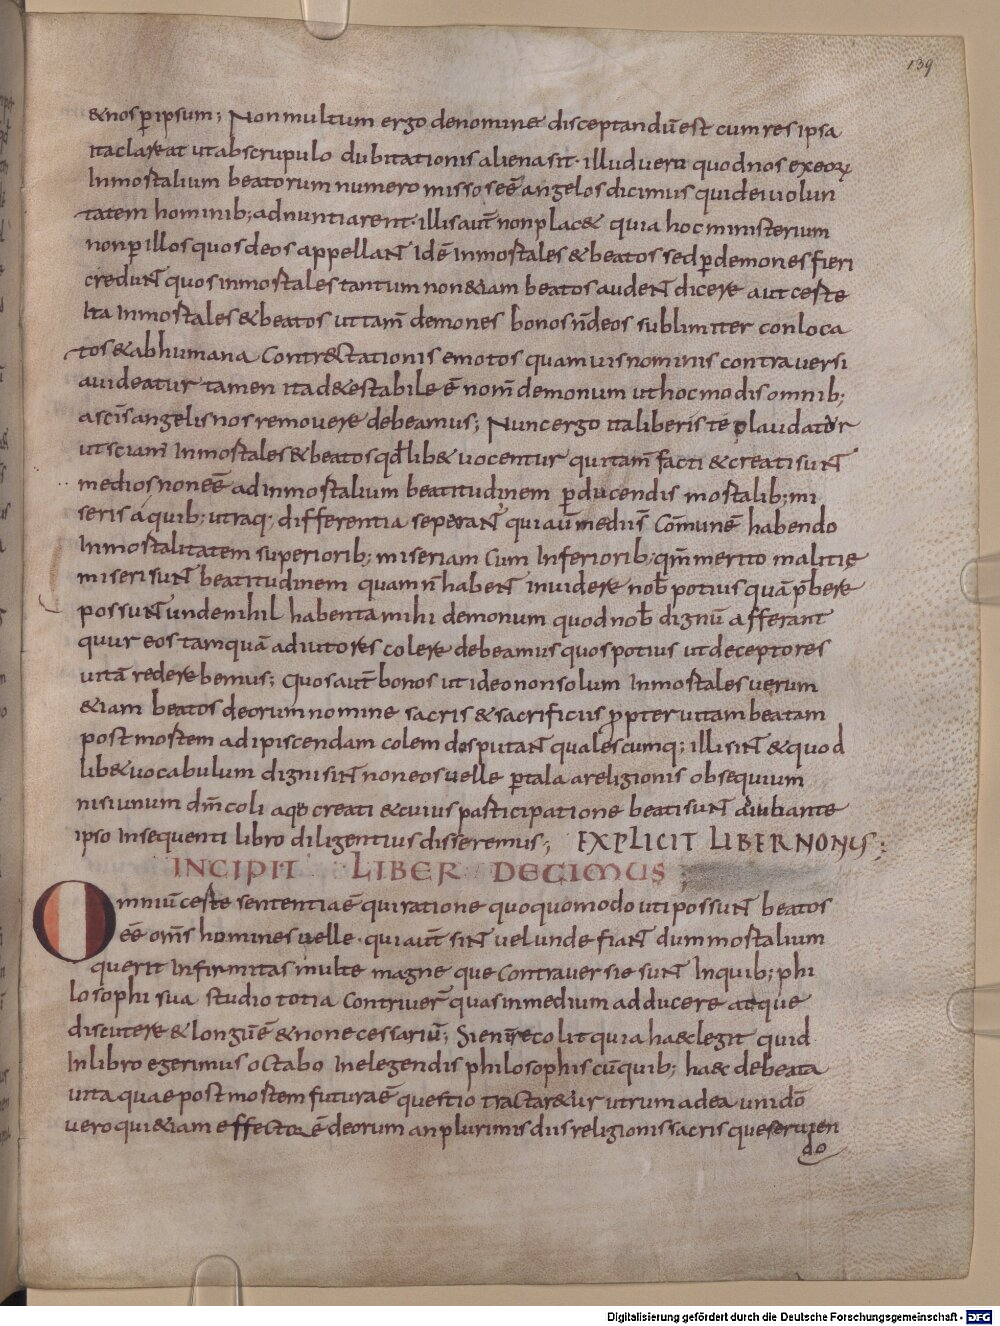 139
&nos p̄ ipsum; Non multum ergo denomine disceptandū est cum res ipsa
ita clareat ut abscrupulo dubitationis aliena sit · illud uero quod nos ex eorꝝ
Inmortalium beatorum numero missos eē angelos dicimus qui dei uolun
tatem hominib; adnuntiarent · illis aut̄ non plac& quia hoc ministerium
non p̄ illos quos deos appellaNt Idē Inmortales & beatos sed p̄ demones fieri
creduNt quos inmortales tantum non &iam beatos audeNt dicere aut certe
Ita Inmortales & beatos ut tam̄ demones bonos n̄ deos sublimiter conloca
tos & ab humana contrectationis emotos quamuis nominis contrauersi
a uideatur tamen ita d&estabile ē nom̄ demonum ut hoc modis omnib;
a sc̄is angelis nos remouere debeamus; Nunc ergo ita liber iste claudatur
ut sciam̄ Inmortales & beatos qđ lib& uocentur qui tam̄ facti & creati suNt
medios non eē ad inmortalium beatitudinem p̄ducendis mortalib; mi
seris a quib; utraq; differentia seperaNt qui aut̄ medii s̄ Com̄unē habendo
Inmortalitatem superiorib; miseriam Cum Inferiorib; qm̄ merito malitie
miseri suNt beatitudinem quam n̄ habeNt inuidere nob̄ potius quā p̄bere
possuNt unde nihil habent amihi demonum quod nob̄ dignū afferant
quur eos tamquā adiutores colere debeamus quos potius ut deceptores
uitā redere bemus; Quos aut̄ bonos ut ideo non solum Inmortales uerum
&iam beatos deorum nomine sacris & sacrificiis p̱pter uitam beatam
post mortem adipiscendam colem dos putaNt qualescumq; illi siNt & quod
lib& uocabulum digni siNt non eos uelle p̄ tala a religionis obsequium
nisi unum dm̄ coli a quo creati & cuius participatione beati suNt adiubante
ipso Insequenti libro diligentius disseremus; EXPLICIT LIBER NONUS;
INCIPIT LIBER DECIMUS
Omniū certe sententia ē qui ratione quoquo modo uti possuNt beatos
eē om̄s homines uelle · qui aut̄ siNt uel unde fiaNt dum mortalium
querit Infirmitas multe magne que Contrauersie suNt Inquib; phi
losophi sua studio totia Contriuer̄ quas in medium adducere atque
discutere & longū ē & non necessariū; Si enim recolit qui a haec legit quid
In libro egerimus octabo Inelegendis philosophis cū quib; haec debeata
uita quae post mortem futura ē questio tractar&ur utrum ad ea uni dō
uero qui &iam effector ē deorum an plurimis diis religionis sacris que seruien
do
Digitalisierung gefördert durch die Deutsche Forschungsgemeinschaft - DFG